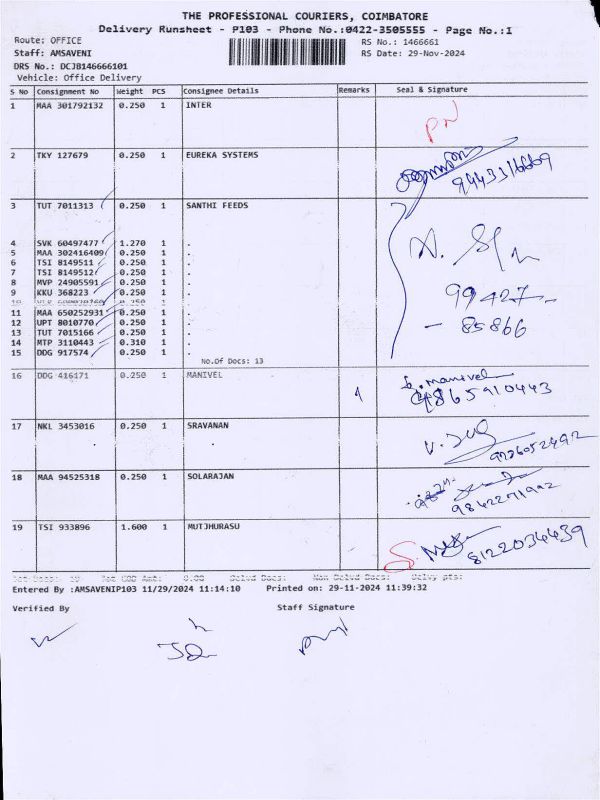 THE PROFESSIONAL COURIERS, COIMBATORE
Delivery Runsheet - P103 - Phone No.:0422-3505555 - Page No.:1
Route: OFFICE RS No.: 1466661
Staff: AMSAVENI RS Date: 29-Nov-2024
DRS No.: DCJB146666101
Vehicle: Office Delivery
S No Consignment No Weight PCS Consignee Details Remarks Seal & Signature
1 MAA 301792132 0.250 1 INTER
PN
2 TKY 127679 0.250 1 EUREKA SYSTEMS
9443316669
3 TUT 7011313 0.250 1 SANTHI FEEDS
4 SVK 60497477 1.270 1 .
5 MAA 302416409 0.250 1 .
6 TSI 8149511 0.250 1 .
7 TSI 8149512 0.250 1 .
8 MVP 24905591 0.250 1 .
9 KKU 368223 0.250 1 .
99427-
- 85866
11 MAA 650252931 0.250 1 .
12 UPT 8010770 0.250 1 .
13 TUT 7015166 0.250 1 .
14 MTP 3110443 0.310 1 .
15 DDG 917574 0.250 1 .
No.Of Docs: 13
16 DDG 416171 0.250 1 MANIVEL
manivel
4865910443
17 NKL 3453016 0.250 1 SRAVANAN
18 MAA 94525318 0.250 1 SOLARAJAN
9842271992
19 TSI 933896 1.600 1 MUTJHURASU
8122034439
Entered By :AMSAVENIP103 11/29/2024 11:14:10 Printed on: 29-11-2024 11:39:32
Verified By Staff Signature